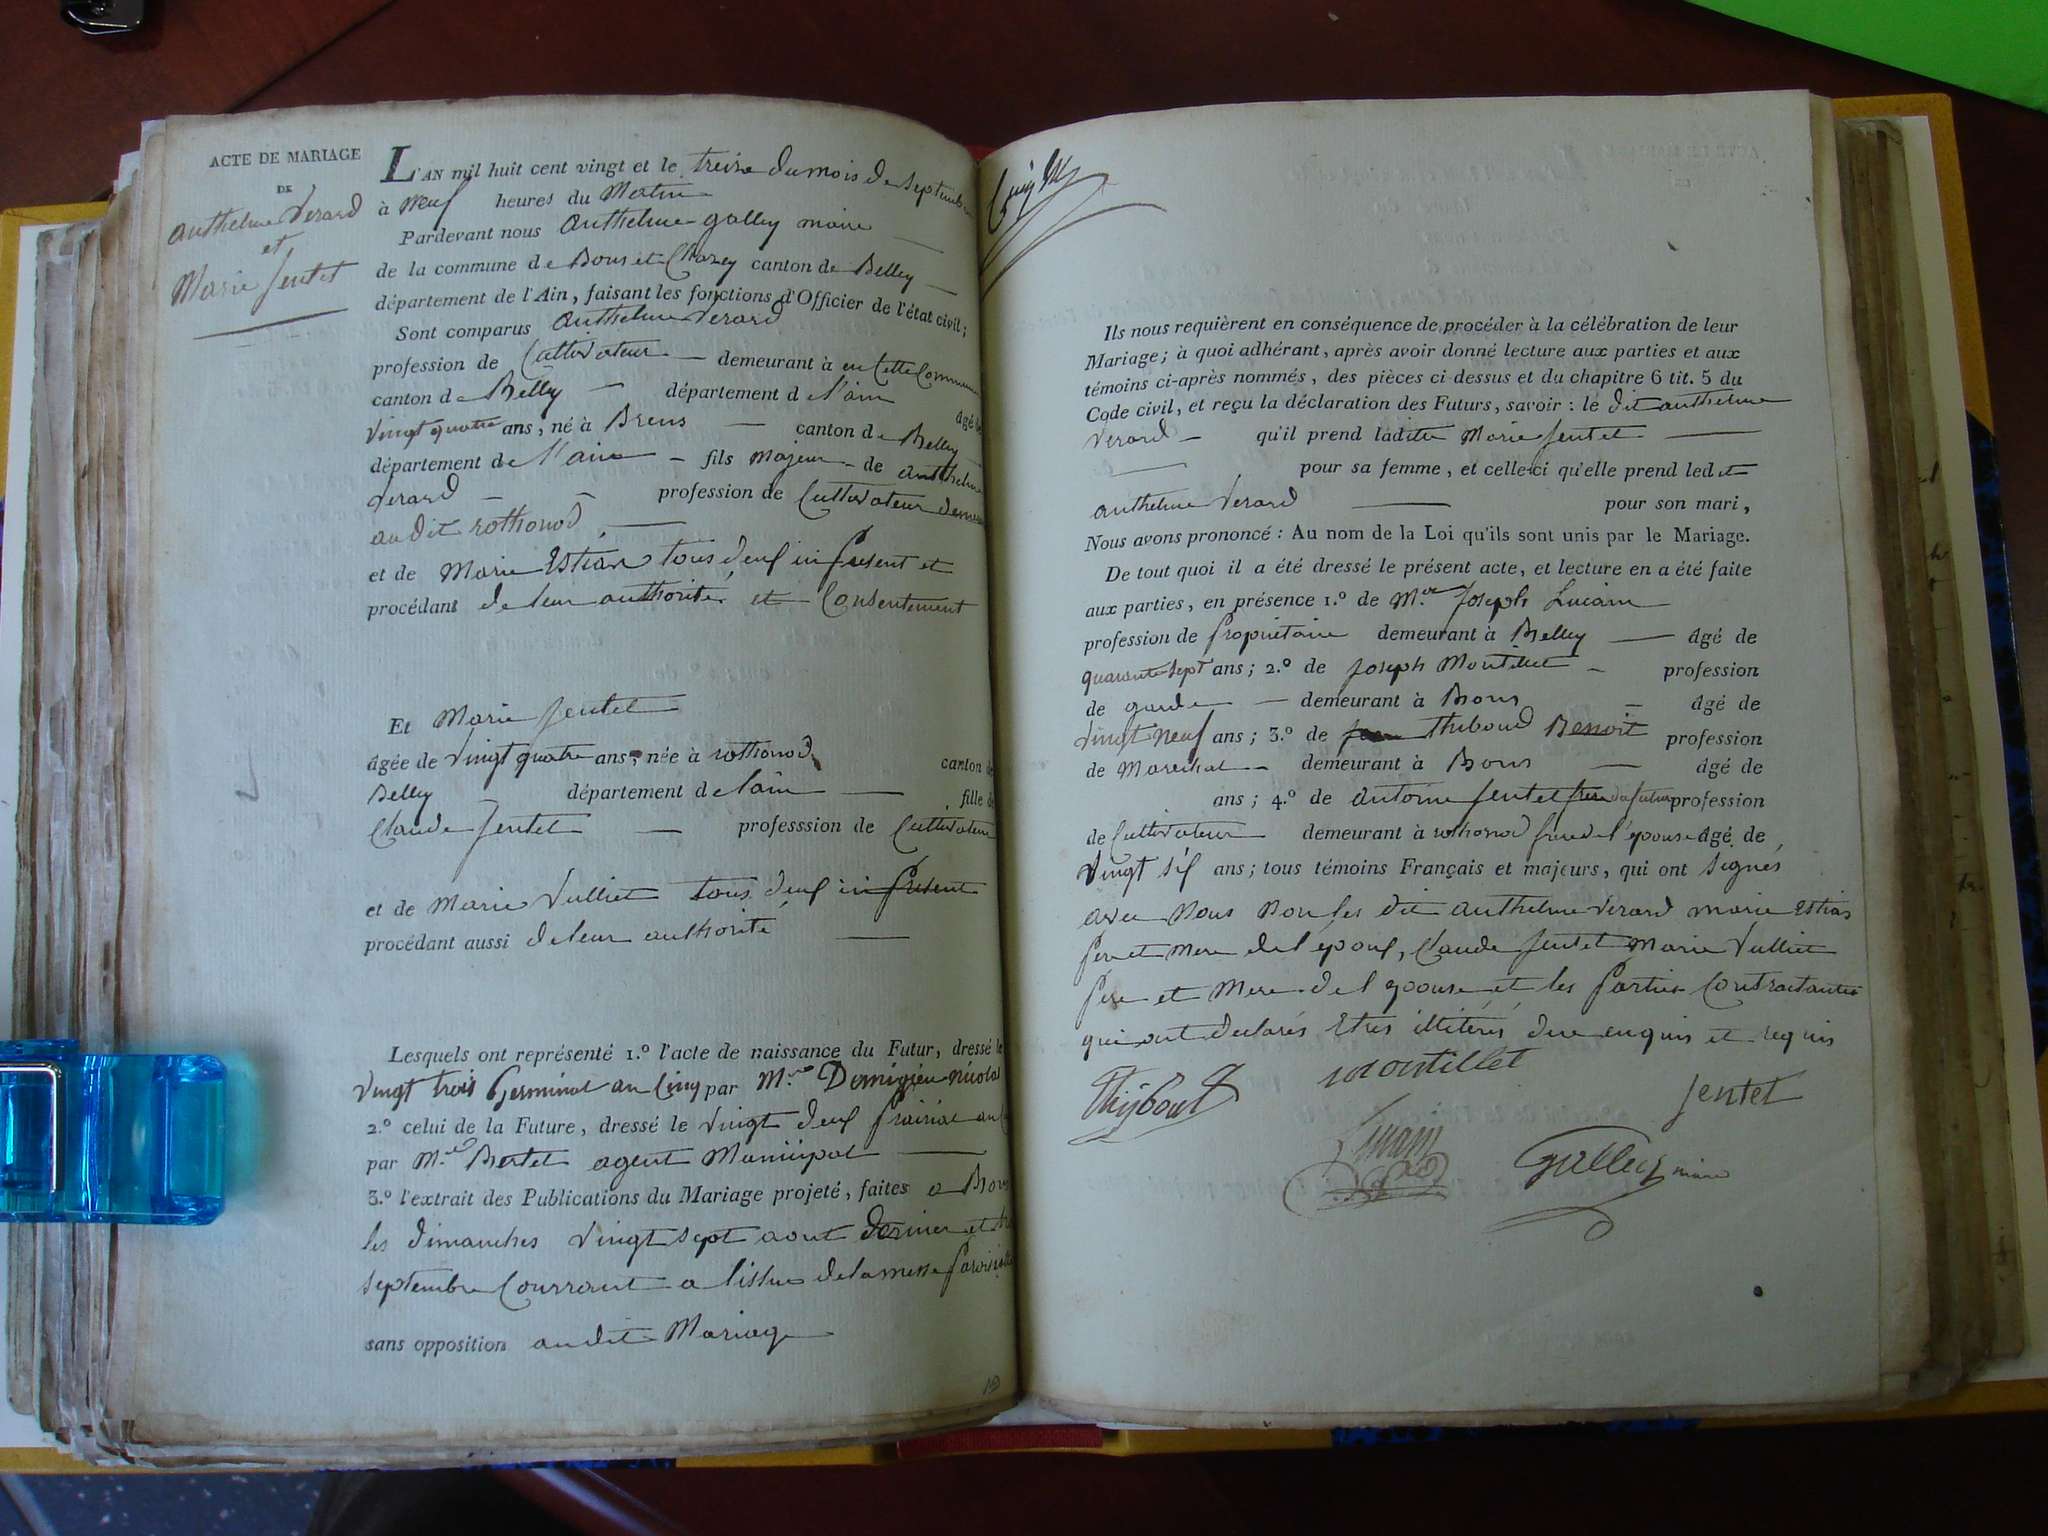 ACTE DE MARIAGE
DE
Anthelme Verard
et
Marie Jentet
L'AN mil huit cent vingt et le treize du mois de septembre
à Neuf heures du Matin
Pardevant nous Anthelme gallay maire
de la commune de Bons et Chazey canton de Belley
département de l'Ain, faisant les fonctions d'Officier de l'état civil;
Sont comparus Anthelme Verard
profession de Cultivateur demeurant à en Cette Commune
canton de Belley département d l'ain
âgé de
vingt quatre ans, né à Brens canton de Belley
département de l'ain fils majeur de anthelme
Verard profession de Cultivateur
au dit rothonod
et de Marie Estian tous deux in present et
procédant de leur authorité et Consentement
Et Marie Jentet
âgée de vingt quatre ans, née à rothonod canton de
Belley département de l'ain fille de
Claude Jentet professsion de Cultivateur
et de Marie Vulliet tous deux in present
procédant aussi de leur authorité
Lesquels ont représenté 1.º l'acte de naissance du Futur, dressé le
vingt trois Germinal an Cinq par M.re
2.º celui de la Future, dressé le vingt deux prairial an
par M.re Bertet agent Municipal
3.º l'extrait des Publications du Mariage projeté, faites a Bons
les dimanches vingt sept aout dernier et
septembre Courrant a l'issue de la messe
sans opposition au dit Mariage
Ils nous requièrent en conséquence de procéder à la célébration de leur
Mariage; à quoi adhérant, après avoir donné lecture aux parties et aux
témoins ci-après nommés, des pièces ci-dessus et du chapitre 6 tit. 5 du
Code civil, et reçu la déclaration des Futurs, savoir: le dit anthelme
Verard qu'il prend ladite Marie Jentet
pour sa femme, et celle-ci qu'elle prend ledit
anthelme Verard pour son mari,
Nous avons prononcé: Au nom de la Loi qu'ils sont unis par le Mariage.
De tout quoi il a été dressé le présent acte, et lecture en a été faite
aux parties, en présence 1.º de M.re Joseph
profession de propriétaire demeurant à Belley âgé de
quarante sept ans; 2.º de Joseph Montillet profession
de garde demeurant à Bons âgé de
vingt neuf ans; 3.º de Thiboud Benoit profession
de Marechal demeurant à Bons âgé de
ans; 4.º de antoine Jentet profession
de Cultivateur demeurant à rothonod frere de l'epouse âgé de
vingt six ans; tous témoins Français et majeurs, qui ont signés
avec Nous Non les dit anthelme Verard marie Estian
pere et mere de l'époux, Claude Jentet Marie Vulliet
pere et Mere de l'epouse et les parties Contractantes
qui ont declarés Etres illiterés de ce enquis et requis
montillet
Jentet
Gallay maire